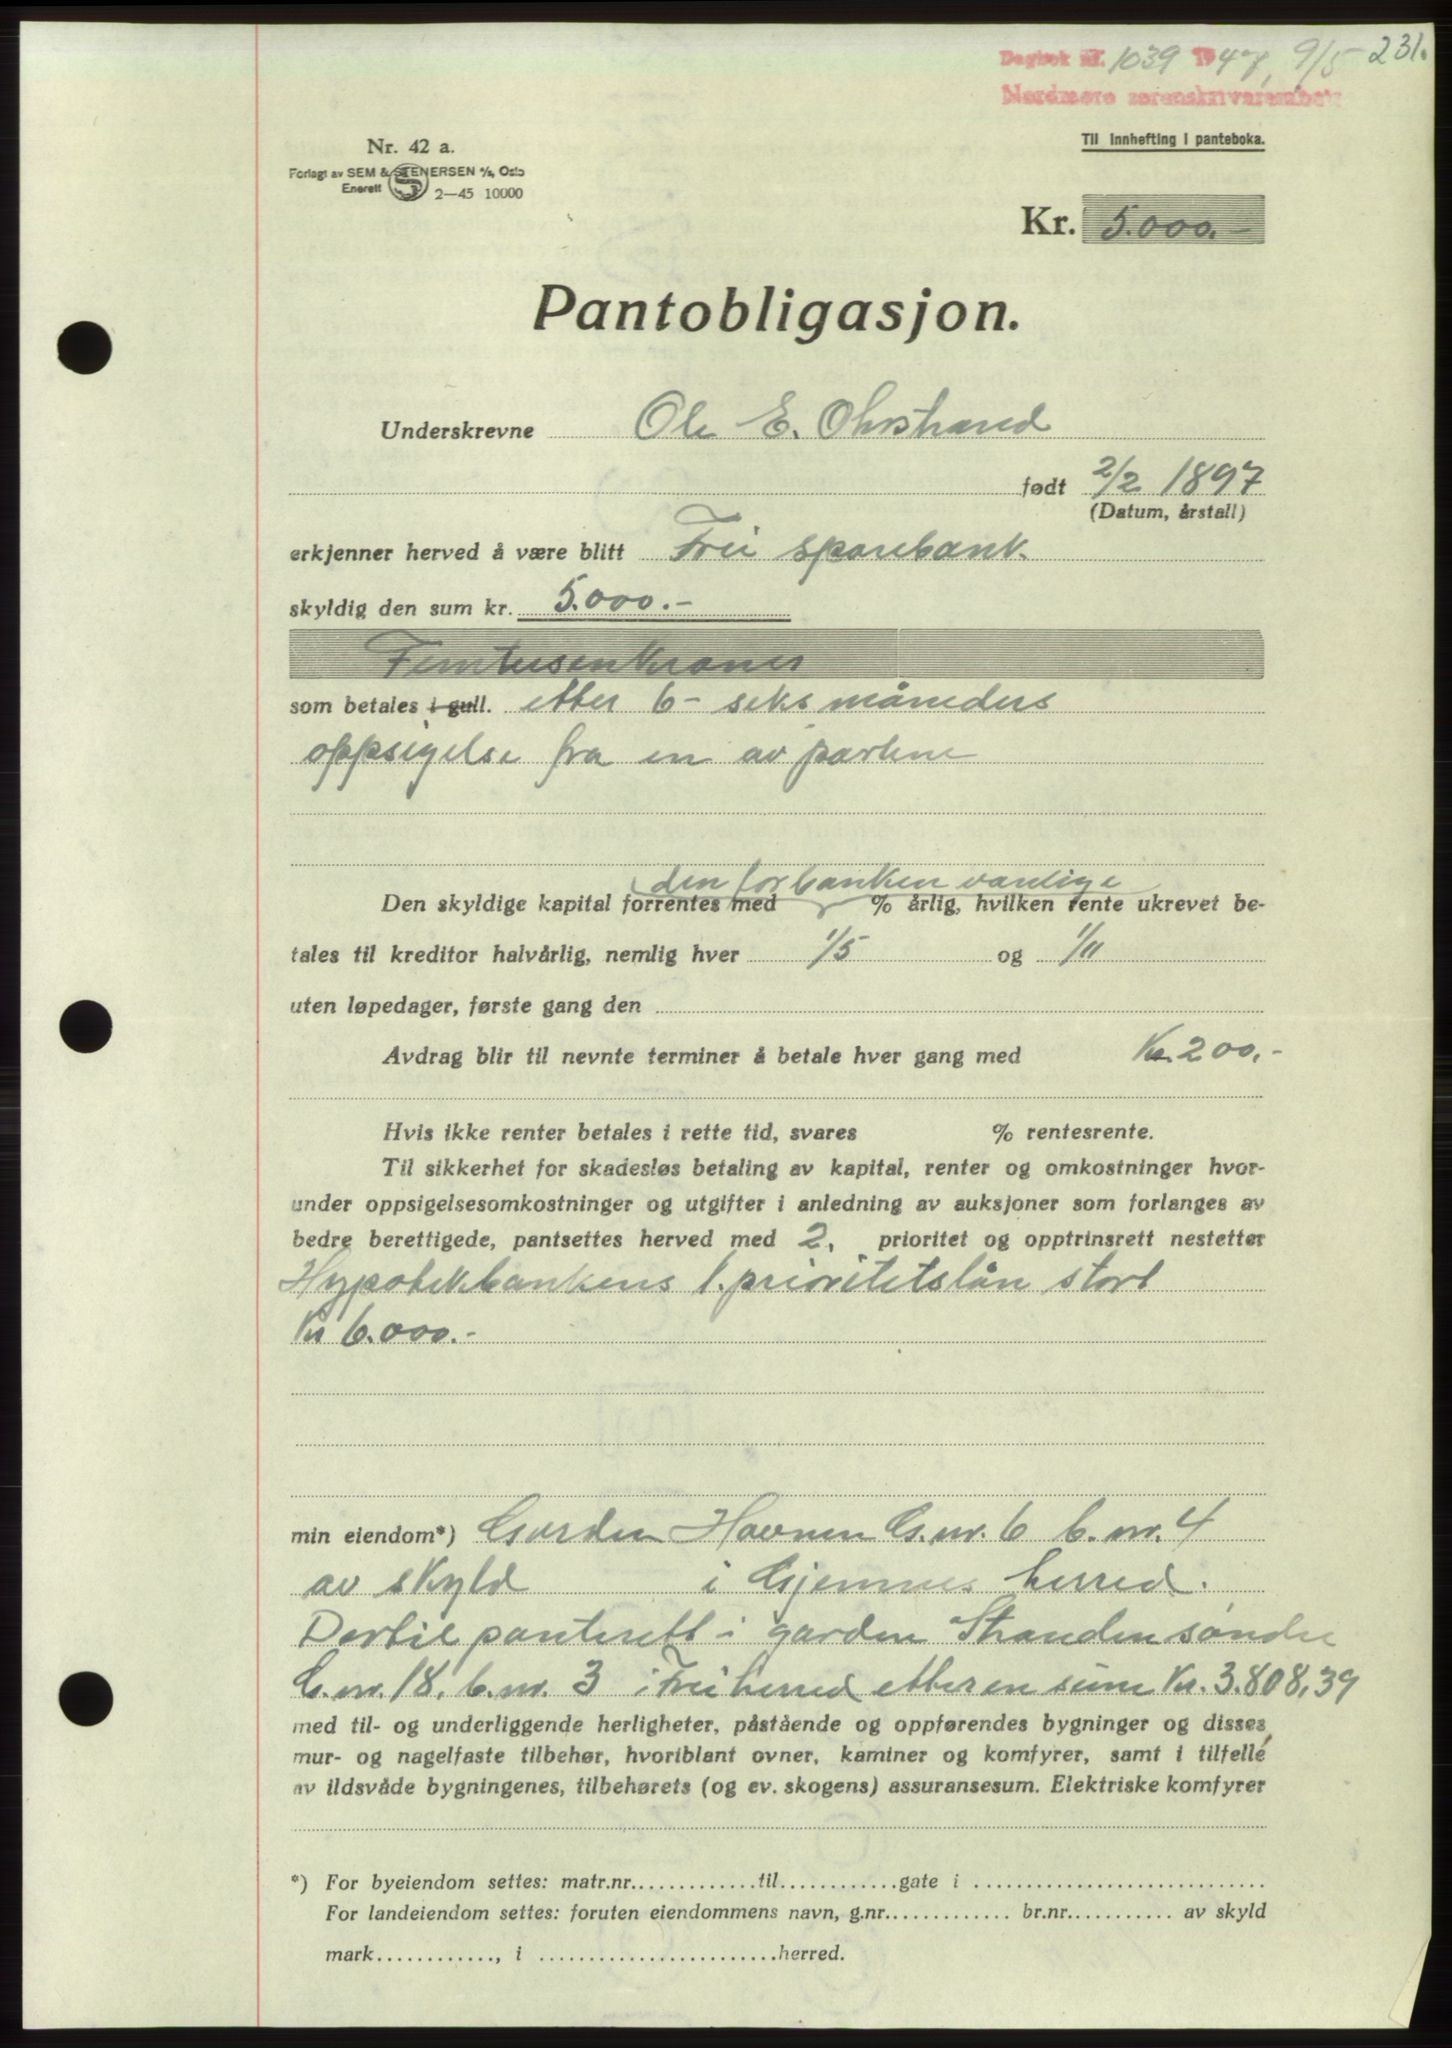 Dagbok nr. 1039 1947, 9/5 231.
Nordmøre sorenskrivarembete
Nr. 42 a.
Til innhefting i panteboka.
Forlagt av SEM & STENERSEN A/S, Oslo
Enerett 2—45 10000
Kr. 5.000.-
Pantobligasjon.
Underskrevne Ole E. Ohrstrand
født 2/2 1897
(Datum, årstall)
erkjenner herved å være blitt Frei sparebank
skyldig den sum kr. 5.000.-
Femtusenkroner
som betales i gull. etter 6- seks måneders
oppsigelse fra en av partene
den for banken vanlige
Den skyldige kapital forrentes med % årlig, hvilken rente ukrevet be-
tales til kreditor halvårlig, nemlig hver 1/5 og 1/11
uten løpedager, første gang den
Avdrag blir til nevnte terminer å betale hver gang med Kr. 200.-
Hvis ikke renter betales i rette tid, svares % rentesrente.
Til sikkerhet for skadesløs betaling av kapital, renter og omkostninger hvor-
under oppsigelsesomkostninger og utgifter i anledning av auksjoner som forlanges av
bedre berettigede, pantsettes herved med 2. prioritet og opptrinsrett nestetter
Hypotekbankens 1. prioritetslån stort
Kr 6.000.-
min eiendom*) Garden Havnen G.nr. 6 b.nr. 4
av skyld i Gjemnes herred.
Dertil panterett i garden Stranden søndre
G.nr. 18, b.nr. 3 i Frei herred etter en sum Kr. 3.808,39
med til- og underliggende herligheter, påstående og oppførendes bygninger og disses
mur- og nagelfaste tilbehør, hvoriblant ovner, kaminer og komfyrer, samt i tilfelle
av ildsvåde bygningenes, tilbehørets (og ev. skogens) assuransesum. Elektriske komfyrer
*) For byeiendom settes: matr.nr.............til.............gate i .............................
For landeiendom settes: foruten eiendommens navn, g.nr............. br.nr........... av skyld
mark............, i .........................herred.